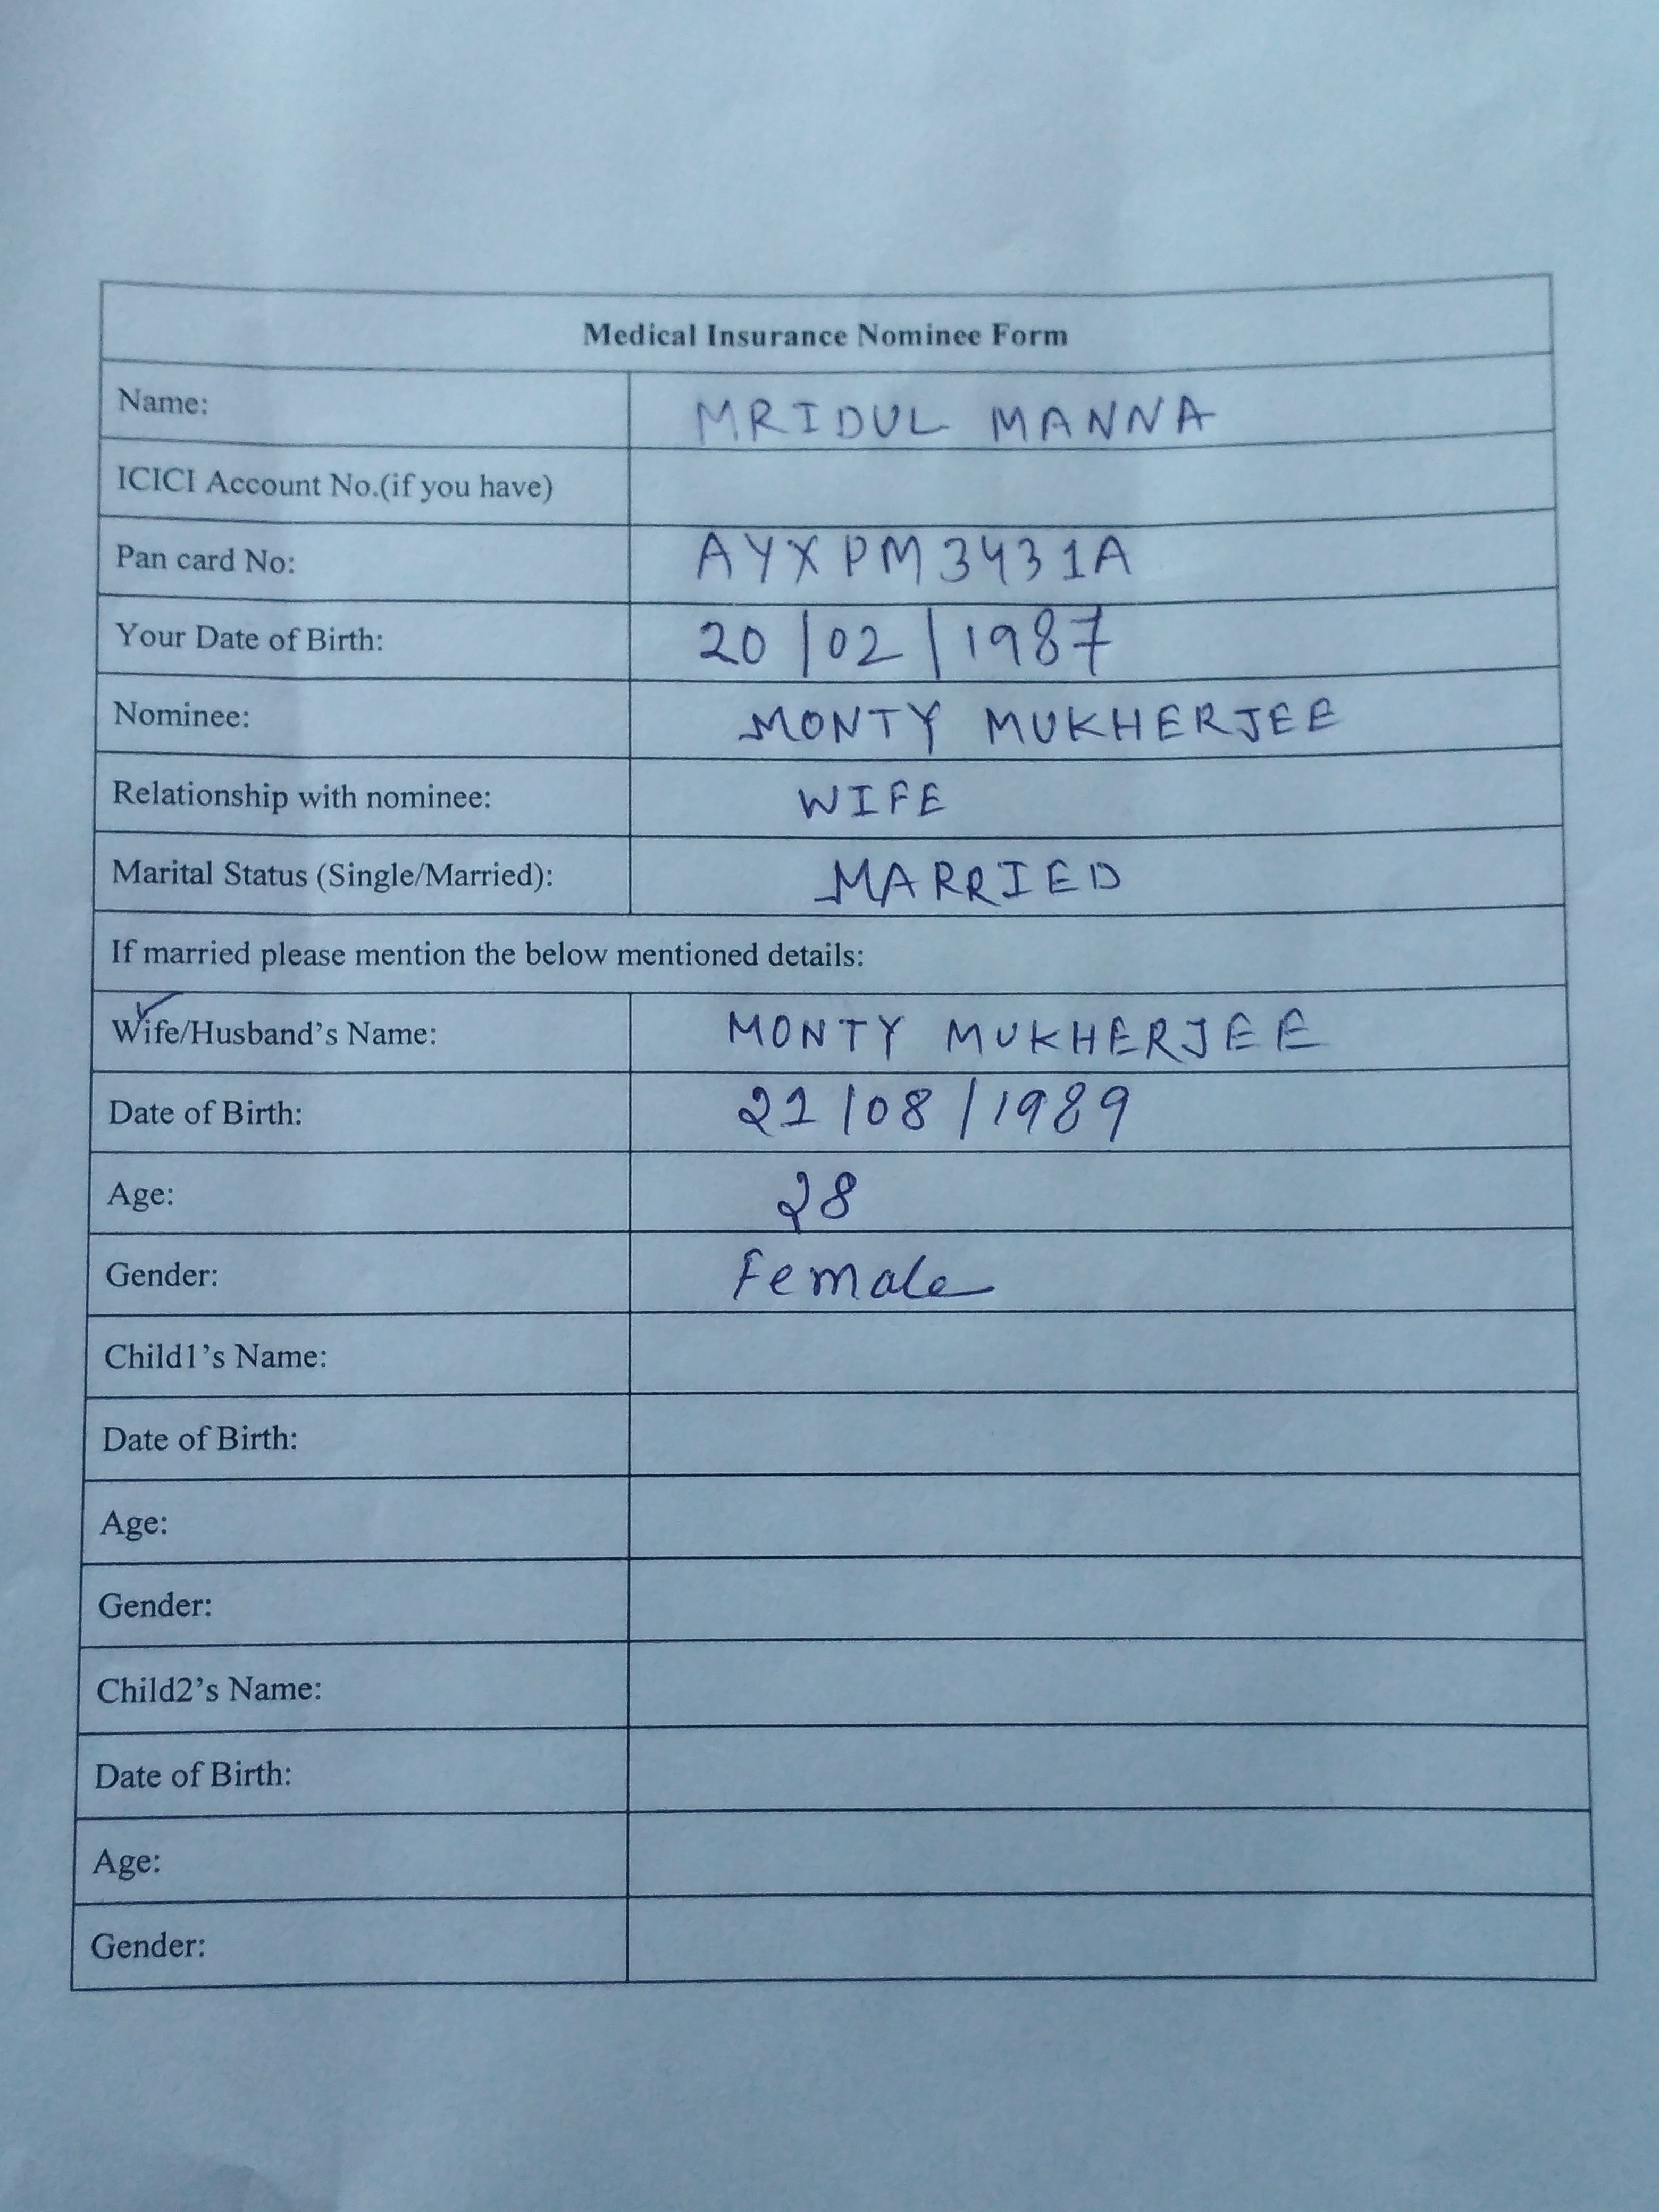 Medical Insurance Nominee Form
Name: MRIDUL MANNA
ICICI Account No.(if you have)
Pan card No: AYXPM3431A
Your Date of Birth: 20/02/1987
Nominee: MONTY MUKHERJEE
Relationship with nominee: WIFE
Marital Status (Single/Married): MARRIED
If married please mention the below mentioned details:
Wife/Husband's Name: MONTY MUKHERJEE
Date of Birth: 21/08/1989
Age: 28
Gender: Female
Child1's Name:
Date of Birth:
Age:
Gender:
Child2's Name:
Date of Birth:
Age:
Gender: